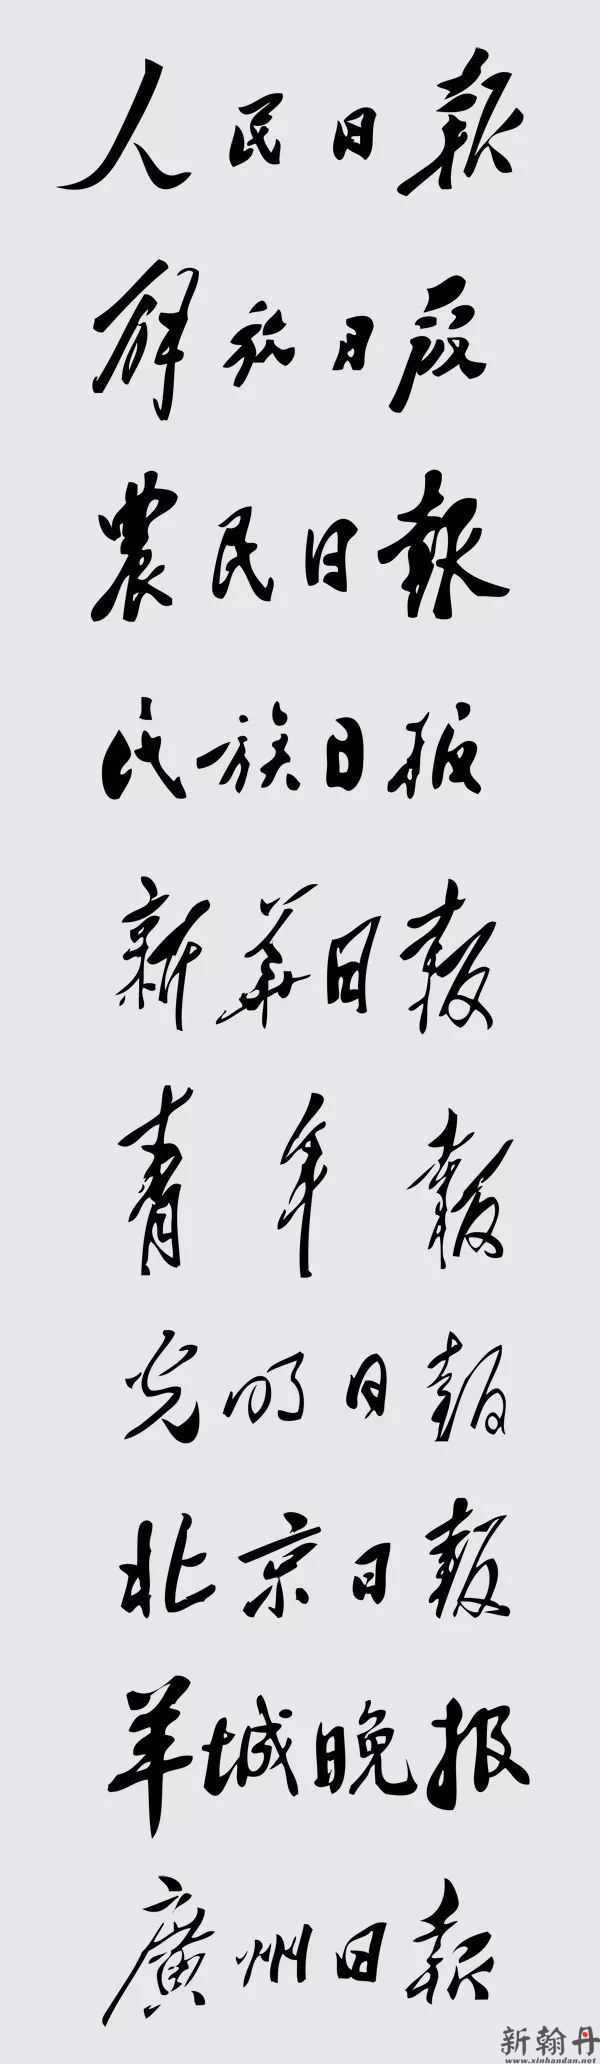 人民日報
解放日报
農民日報
民族日报
新华日報
青年報
光明日報
北京日報
羊城晚报
廣州日報
新翰丹
www.xinhandan.net